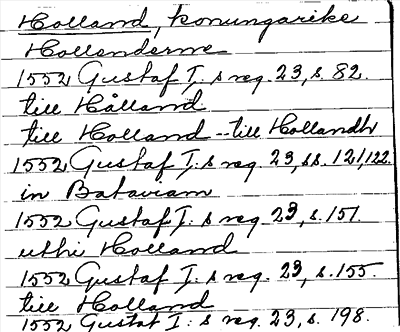 Holland, konungarike
Hollenderne
1552 Gustaf I:s reg. 23, s. 82.
till Hålland
till Holland -- till Hollandh
1552 Gustaf I:s reg. 23, ss. 121, 122.
in Bataviam
1552 Gustaf I:s reg. 23, s. 151.
uthi Holland
1552 Gustaf I:s reg. 23, s. 155.
till Holland
1552 Gustaf I:s reg. 23, s. 198.